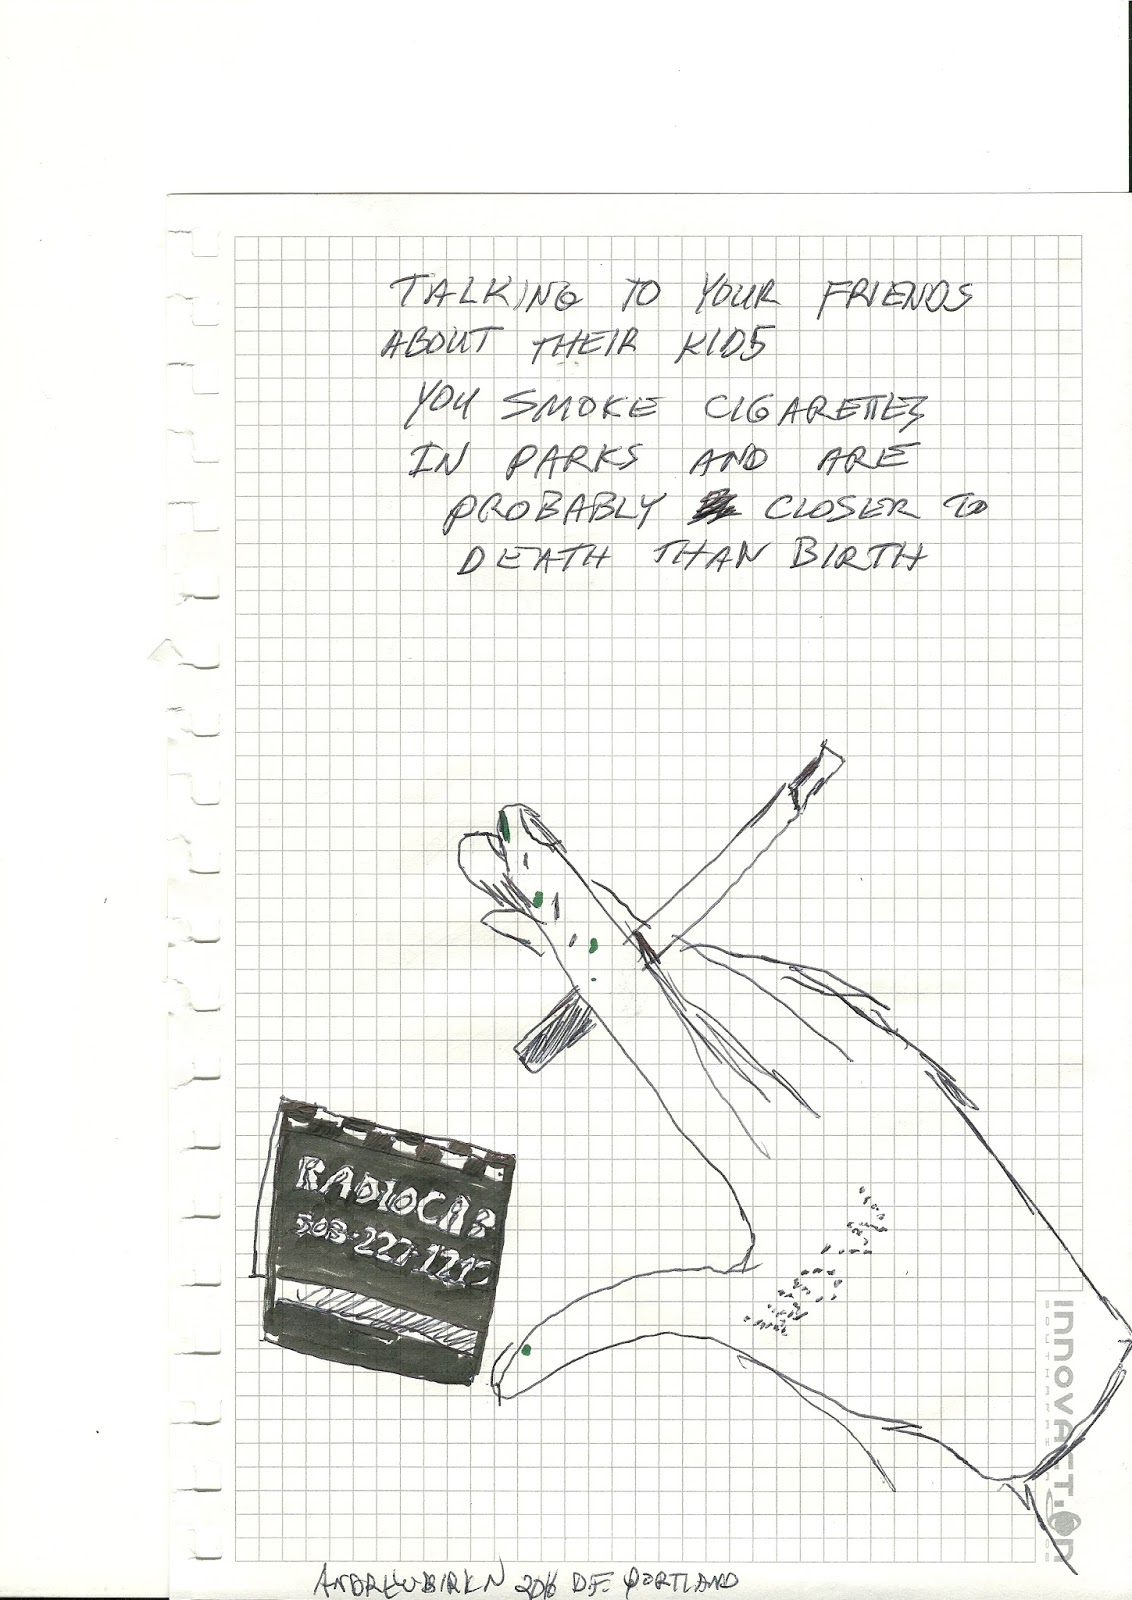 TALKING TO YOUR FRIENDS
ABOUT THEIR KIDS
YOU SMOKE CIGARETTES
IN PARKS AND ARE
PROBABLY CLOSER TO
DEATH THAN BIRTH
RADIOCAB
503-227-121
INNOVACT.ON
ANDREW BIRKN 2016 D.F. PORTLAND